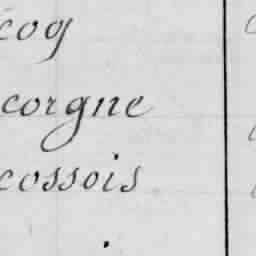 cog
corgne
cossois